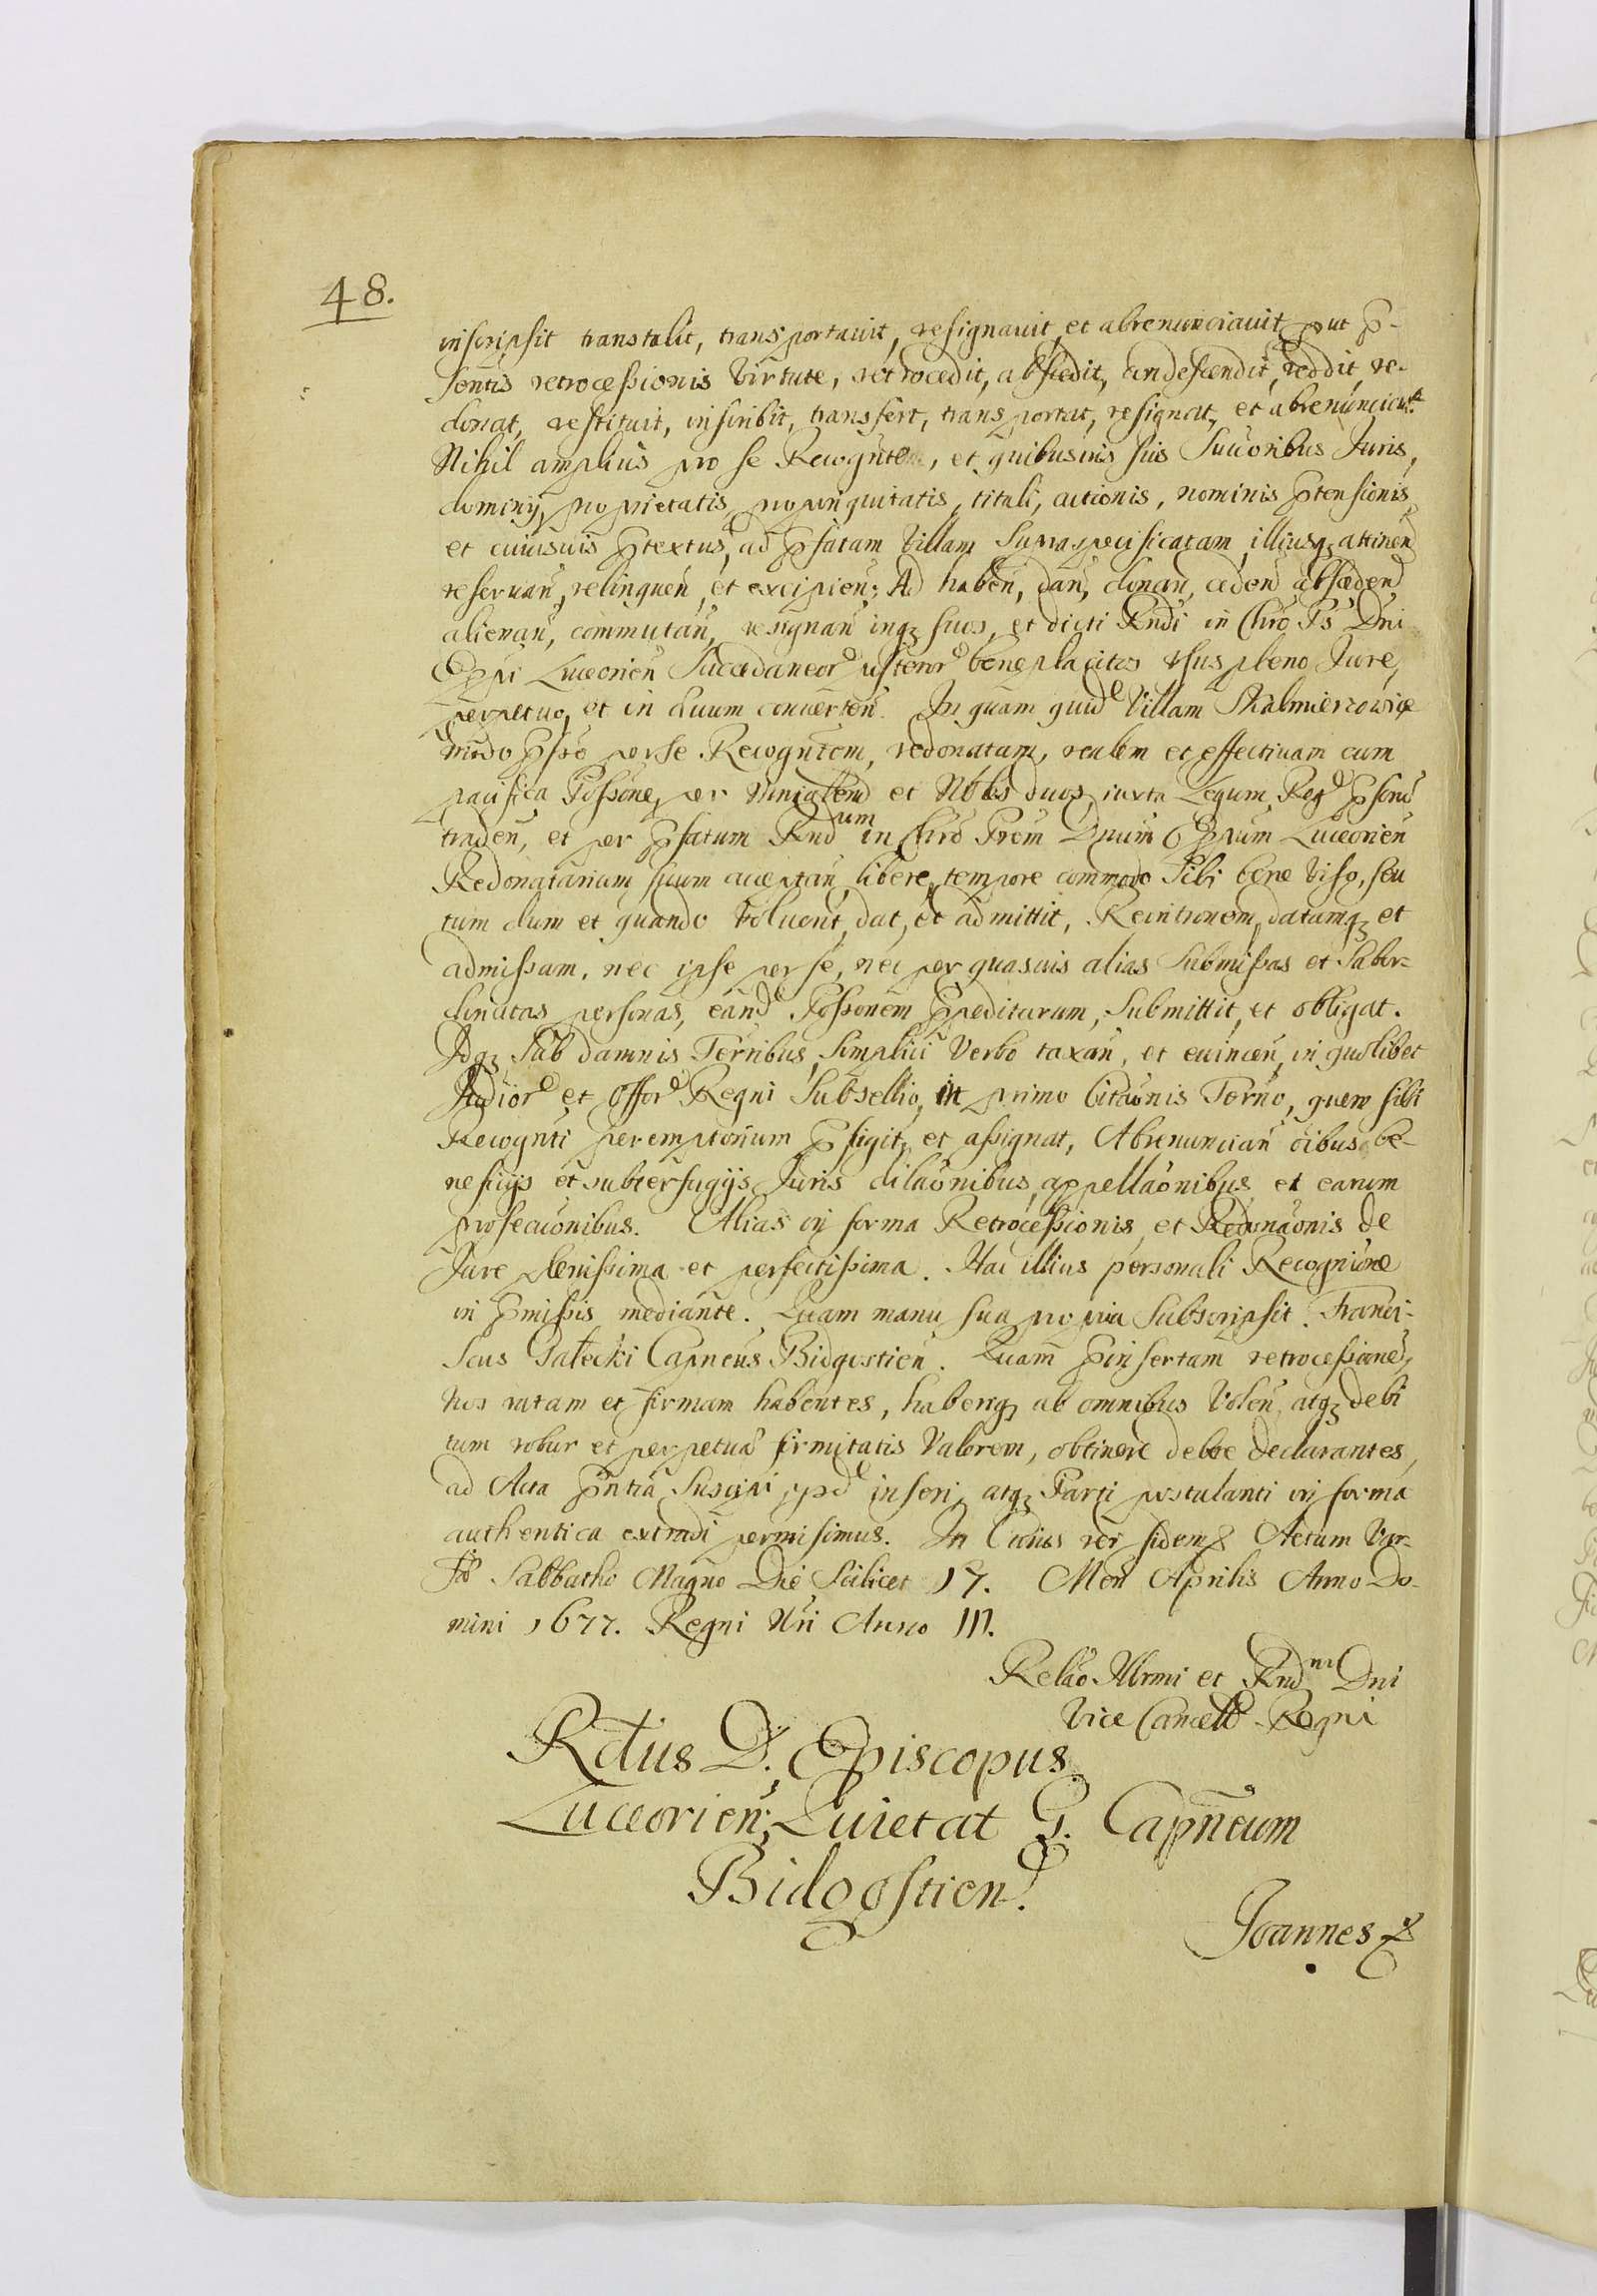 48.
inscripsit transtulit, transportavit, resignavit et abrenunciavit, put p-
sentis retrocessionis Virtute, retrocedit, abscedit, condescendit, reddit, re-
donat, restituit, inscribit, transfert, transportat, resignat, et abrenunciat
Nihil amplius pro se Recognte, et quibusvis suis Succoribus Juris,
dominij, proprietatis, propinquitatis, tituli, actionis, nominis ptensionis,
et cuiusvis ptextus, ad pfatam Villam Supraspecificatam, illiusqz attinen
reservan, relinquen, et excipien; Ad haben, dan, donan, ceden abscedend
alienan, commutan, resignan inqz suos, et dicti Rndi in Chro Ps Dni
Eppi Luceorien Succedaneor usteror beneplacitos usus pleno Jure,
perpetuo, et in ævum converten. In quam quid Villam Skalmierzowice
modo pso per se Recogntem, redonatam, realem et effectivam cum
pacifica Possone, per Minialem et Nobles duos, iuxta Legum Reg pscru
traden, et per pfatum Rndum in Chro Prem Dnum Eppum Luceorien
Redonatarium suum acceptan, libere, tempore commodo Sibi bene viso, seu
tum dum et quando Voluerit, dat, et admittit, Recintronem, datamqz et
admissam, nec ipse per se, nec per quasvis alias Submissas et Subor-
dinatas personas, eand Possonem ppediturum, Submittit, et obligat.
Idqz Sub damnis Terribus, Simplici Verbo taxan, et evincen, in quolibet
Judiior et Offor Regni Subsellio, in primo Citaonis Termo, quem sibi
Recognti peremptorium pfigit, et assignat, Abrenuncian oibus be-
neficijs et subterfugijs Juris dilaonibus, appellaonibus et earum
prosecuonibus. Alias in forma Retrocessionis et Redonaonis de
Jure plenissima et perfectissima. Hac illius personali Recognione
in pmissis mediante. Quam manu sua propria Subscripsit. Franci-
scus Gałecki Capneus Bidgostien. Quam pinsertam retrocessione
nos ratam et firmam habentes, haberiqz ab omnibus Volen, atqz debi
tum robur et perpetuæ firmitatis Valorem, obtinere debe declarantes,
ad Acta pntia Suscipi, ipsd inseri, atqz Parti postulanti in forma
authentica extradi permisimus. In Cuius rei fidem & Actum Var-
Sabbatho Magno Die Scilicet 17. Men Aprilis Anno Do-
mini 1677. Regni Nri Anno III.
Relao Illrmi et Rndmi Dni
Vice Cancell Regni
Rdus D. Episcopus
Luceorien, Quietat G. Capneum
Bidgostien.
Joannes